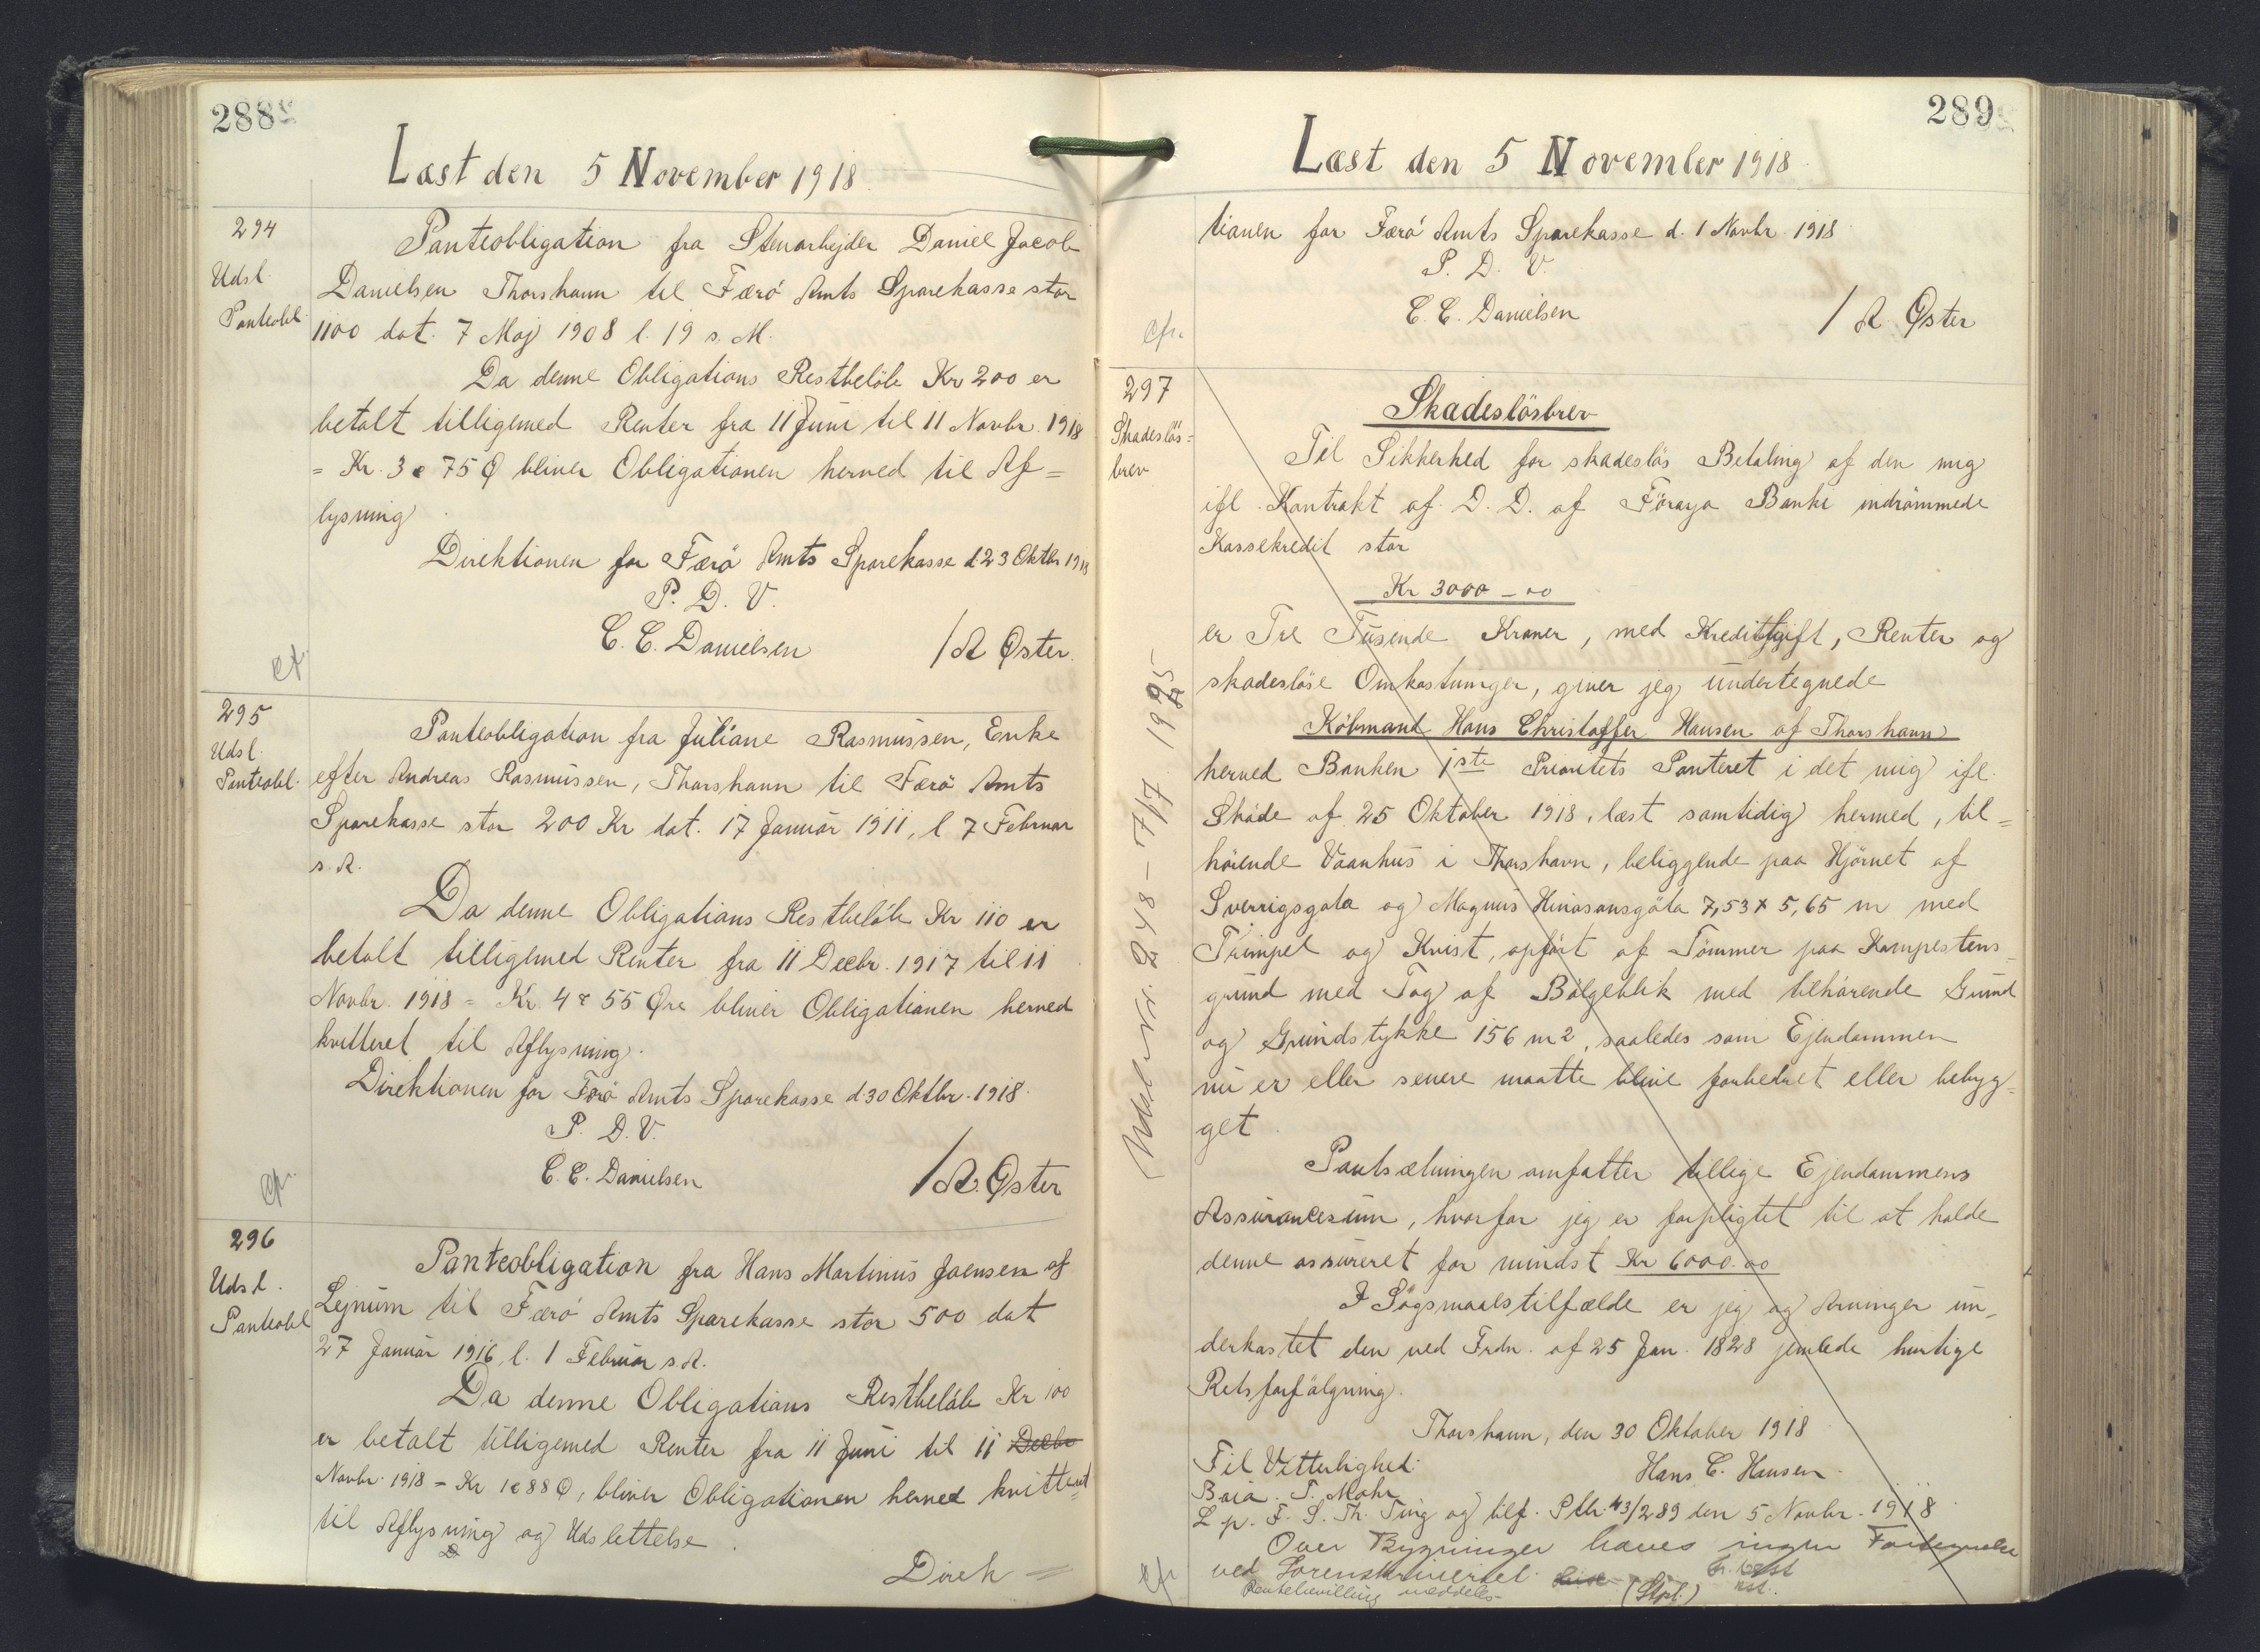 288
Læst den 5 November 1918
294
Udsl.
Panteobl.
Panteobligation fra Stenarbejder Daniel Jacob
Danielsen Thorshavn til Færö Amts Sparekasse stor
1100 dat. 7 Maj 1908 l. 19 s. M.
Da denne Obligations Restbelöb Kr 200 er
betalt tilligemed Renter fra 11 Juni til 11 Novbr. 1918
= Kr. 3 e 75 Ø bliver Obligationen herved til Af=
lysning.
Direktionen for Færö Amts Sparekasse d 23 Oktbr 1918
P. D. V.
C. C. Danielsen
/ A Øster.
cfr.
295
Udsl.
Panteobl.
Panteobligation fra Juliane Rasmussen, Enke
efter Andreas Rasmussen, Thorshavn til Færö Amts
Sparekasse stor 200 Kr dat. 17 Januar 1911, l 7 Februar
s. A.
Da denne Obligations Restbelöb Kr 110 er
betalt tilligemed Renter fra 11 Decbr. 1917 til 11
Novbr. 1918 = Kr. 4 e 55 Øre bliver Obligationen herved
kvitteret til Aflysning.
Direktionen for Færö Amts Sparekasse d. 30 Oktbr. 1918.
P. D. V.
C. C. Danielsen
/ A. Øster
cfr.
296
Udsl.
Panteobl
Panteobligation fra Hans Martinus Joensen af
Lejnum til Færö Amts Sparekasse stor 500 dat
27 Januar 1916, l. 1 Februar s. A.
Da denne Obligations Restbelöb Kr 100
er betalt tilligemed Renter fra 11 Juni til 11 Decbr
Novbr. 1918 = Kr 1 e 88 Ø, bliver Obligationen herved kvitteret
til Aflysning og Udslettelse.
Direk=
289
Læst den 5 November 1918
tionen for Færö Amts Sparekasse d. 1 Novbr. 1918
P. D. V.
C. C. Danielsen
/ A Øster
cfr.
297
Skadeslös=
brev
Udsl. Nr. 248 - 7/7 1925
Skadeslösbrev
Til Sikkerhed for skadeslös Betaling af den mig
ifl. Kontrakt af D. D. af Föroya Banki indrömmede
Kassekredit stor
Kr 3000 - 00
er Tre Tusende Kroner, med Kreditafgift, Renter og
skadeslöse Omkostninger, giver jeg undertegnede
Köbmand Hans Christoffer Hansen af Thorshavn
herved Banken 1ste Prioritets Panteret i det mig ifl.
Sköde af 25 Oktober 1918, læst samtidig hermed, til=
hörende Vaanhus i Thorshavn, beliggende paa Hjörnet af
Sverrisgøta og Magnus Heinasonsgöta 7,53 x 5,65 m med
Trimpel og Kvist, opfört af Tömmer paa Kampestens=
grund med Tag af Bölgeblik med tilhörende Grund
og Grundstykke 156 m2, saaledes som Ejendommen
nu er eller senere maatte blive forbedret eller bebyg=
get.
Pantsætningen omfatter tillige Ejendommens
Assurancesum, hvorfor jeg er forpligtet til at holde
denne assureret for mindst Kr 6000.00
I Sögsmaalstilfælde er jeg og Arvinger un=
derkastet den ved Frdn. af 25 Jan. 1828 hjemlede hurtige
Retsforfölgning.
Thorshavn, den 30 Oktober 1918
Til Vitterlighed:
Hans C. Hansen.
J. Mohr
L. p. F. S. Th. Ting og tilf. Ptb. 43/289 den 5 Novbr. 1918.
Over Bygninger haves ingen Fortegnelse
ved Sorenskriveriet.
Pantebevilling meddeles
(Stpl.)
cfr